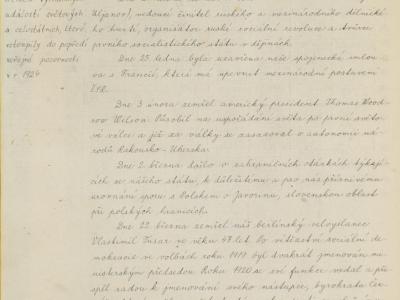 událostí světových
a celostátních, které
vstoupily do popředí
veřejné pozornosti
v r. 1924
Uljanov/, vedoucí činitel ruského a mezinárodního dělnické
ho hnutí, organisátor ruské sociální revoluce a tvůrce
prvního socialistického státu v dějinách.
Dne 25. ledna byla uzavřena naše spojenecká smlou
va s Francií, která má upevnit mezinárodní postavení
ČSR.
Dne 3. února zemřel americký president Thomas Wood
row Wilson. Působil na uspořádání světa po první světo
vé válce a již za války se zasazoval o autonomii ná
rodů Rakousko-Uherska.
Dne 2. března došlo v zahraničních otázkách týkají
cích se našeho státu, k důležitému a pro nás příznivému
urovnání sporu s Polskem o Javorinu, slovenskou oblast
při polských hranicích.
Dne 22. března zemřel náš berlínský velvyslanec
Vlastimil Tusar ve věku 43 let. Po vítězství sociální de
mokracie ve volbách roku 1919 byl dvakrát jmenován mi
nisterským předsedou. Roku 1920 se své funkce vzdal a při
spěl radou k jmenování svého nástupce, byrokrata Čer